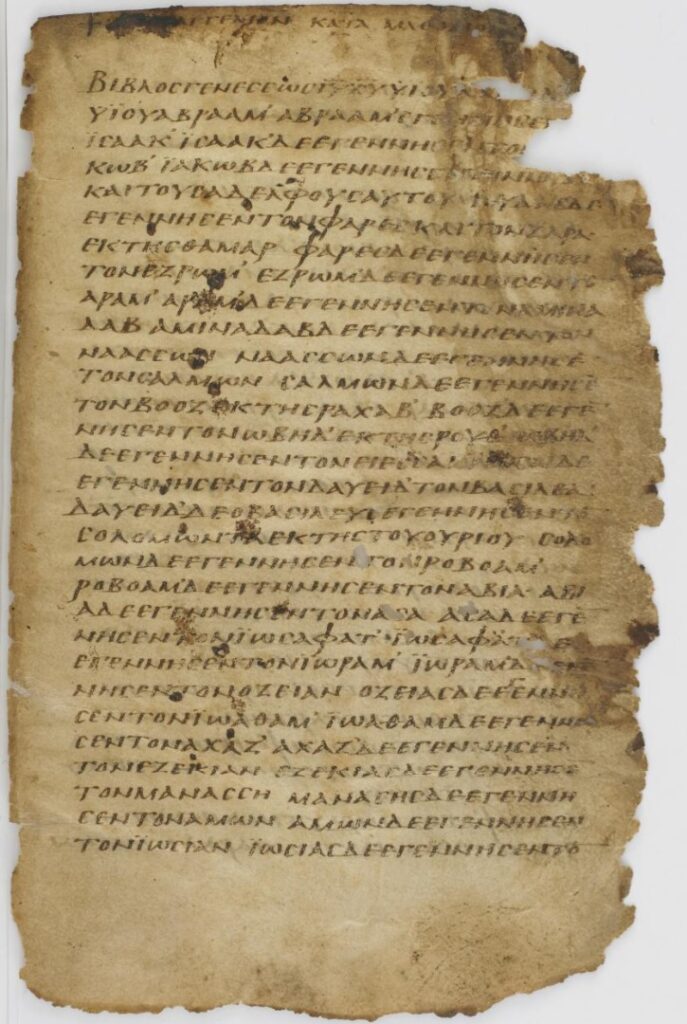 ΚΑΤΑ
ΒΙΒΛΟΣΓΕΝΕΣΕΩΣΙΥΧΥΥΙΟΥ
ΥΪΟΥΑΒΡΑΑΜ' ΑΒΡΑΑΜ'
ΪΣΑΑΚ' ΪΣΑΑΚ'ΔΕΕΓΕΝΝΗΣΕ
ΚΩΒ' ΪΑΚΩΒΔΕΕΓΕΝΝΗΣΕ
ΚΑΙΤΟΥΣΑΔΕΛΦΟΥΣΑΥΤΟΥ ΙΟΥΔΑΣΔΕ
ΕΓΕΝΝΗΣΕΝΤΟΝΦΑΡΕΣΚΑΙΤΟΝΖΑΡΑ
ΕΚΤΗΣΘΑΜΑΡ ΦΑΡΕΣΔΕΕΓΕΝΝΗΣΕΝ
ΤΟΝΕΖΡΩΜ' ΕΖΡΩΜ'ΔΕΕΓΕΝΝΗΣΕΝΤΟ
ΑΡΑΜ' ΑΡΑΜ'ΔΕΕΓΕΝΝΗΣΕΝΤΟΝΑΜΙΝΑ
ΔΑΒ ΑΜΙΝΑΔΑΒΔΕΕΓΕΝΝΗΣΕΝΤΟΝ
ΝΑΑΣΣΩΝ ΝΑΑΣΣΩΝΔΕΕΓΕΝΝΗΣΕ
ΤΟΝΣΑΛΜΩΝ ΣΑΛΜΩΝΔΕΕΓΕΝΝΗΣΕ
ΤΟΝΒΟΟΖ'ΕΚΤΗΣΡΑΧΑΒ' ΒΟΟΖΔΕΕΓΕ
ΝΗΣΕΝΤΟΝΩΒΗΔ'ΕΚΤΗΣΡΟΥΘ' ΩΒΗΔ
ΔΕΕΓΕΝΝΗΣΕΝΤΟΝΕΙΕΣΣΑΙ
ΕΓΕΝΝΗΣΕΝΤΟΝΔΑΥΕΙΔ'ΤΟΝΒΑΣΙΛΕΑ
ΔΑΥΕΙΔ'ΔΕΟΒΑΣΙΛΕΥΣΕΓΕΝΝΗΣΕΝ
ΣΟΛΟΜΩΝΤΑΕΚΤΗΣΤΟΥΟΥΡΙΟΥ ΣΟΛΟ
ΜΩΝΔΕΕΓΕΝΝΗΣΕΝΤΟΝΡΟΒΟΑΜ'
ΡΟΒΟΑΜ'ΔΕΕΓΕΝΝΗΣΕΝΤΟΝΑΒΙΑ ΑΒΙ
ΔΕΕΓΕΝΝΗΣΕΝΤΟΝΑΣΑ ΑΣΑΔΕΕΓΕ
ΝΗΣΕΝΤΟΝΪΩΣΑΦΑΤ' ΪΩΣΑΦΑΤ
ΕΓΕΝΝΗΣΕΝΤΟΝΪΩΡΑΜ' ΪΩΡΑΜ'Δ
ΝΗΣΕΝΤΟΝΟΖΕΙΑΝ ΟΖΕΙΑΣΔΕΕΓΕΝΝΗ
ΣΕΝΤΟΝΪΩΑΘΑΜ' ΪΩΑΘΑΜΔΕΕΓΕΝΝΗ
ΣΕΝΤΟΝΑΧΑΖ' ΑΧΑΖ'ΔΕΕΓΕΝΝΗΣΕΝ
ΤΟΝΕΖΕΚΙΑΝ ΕΖΕΚΙΑΣΔΕΕΓΕΝΝΗΣΕ
ΤΟΝΜΑΝΑΣΣΗ ΜΑΝΑΣΗΣΔΕΕΓΕΝΝΗ
ΣΕΝΤΟΝΑΜΩΝ ΑΜΩΝΔΕΕΓΕΝΝΗΣΕΝ
ΤΟΝΪΩΣΙΑΝ ΪΩΣΙΑΣΔΕΕΓΕΝΝΗΣΕΝΤΟ